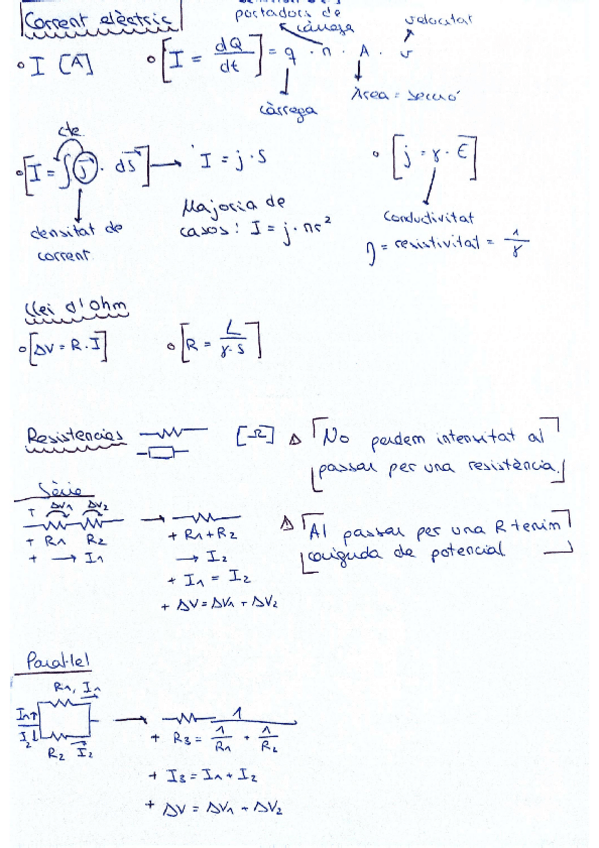 portadors de
càrrega
velocitat
Corrent elèctric
∘ I [A]
∘ [I = dQ/dt] = q · n · A · v
càrrega
Àrea = secció
cte.
∘ [I = ∫ j · dS] → I = j · S
∘ [j = γ · E]
densitat de
corrent
Majoria de
casos: I = j · πr²
Conductivitat
η = resistivitat = 1/γ
Llei d'Ohm
∘ [ΔV = R · I]
∘ [R = L/γ·S]
Resistencias
[Ω]
Δ No perdem intensitat al
passar per una resistència.
Sèrie
+ ΔV1 ΔV2
+ R1 R2
+ → I1
→
+ R1 + R2
→ I2
+ I1 = I2
+ ΔV = ΔV1 + ΔV2
Δ Al passar per una R tenim
caiguda de potencial
Paral·lel
R1, I1
I1
I2
R2 I2
→
+ R3 = 1/(1/R1 + 1/R2)
+ I3 = I1 + I2
+ ΔV = ΔV1 = ΔV2